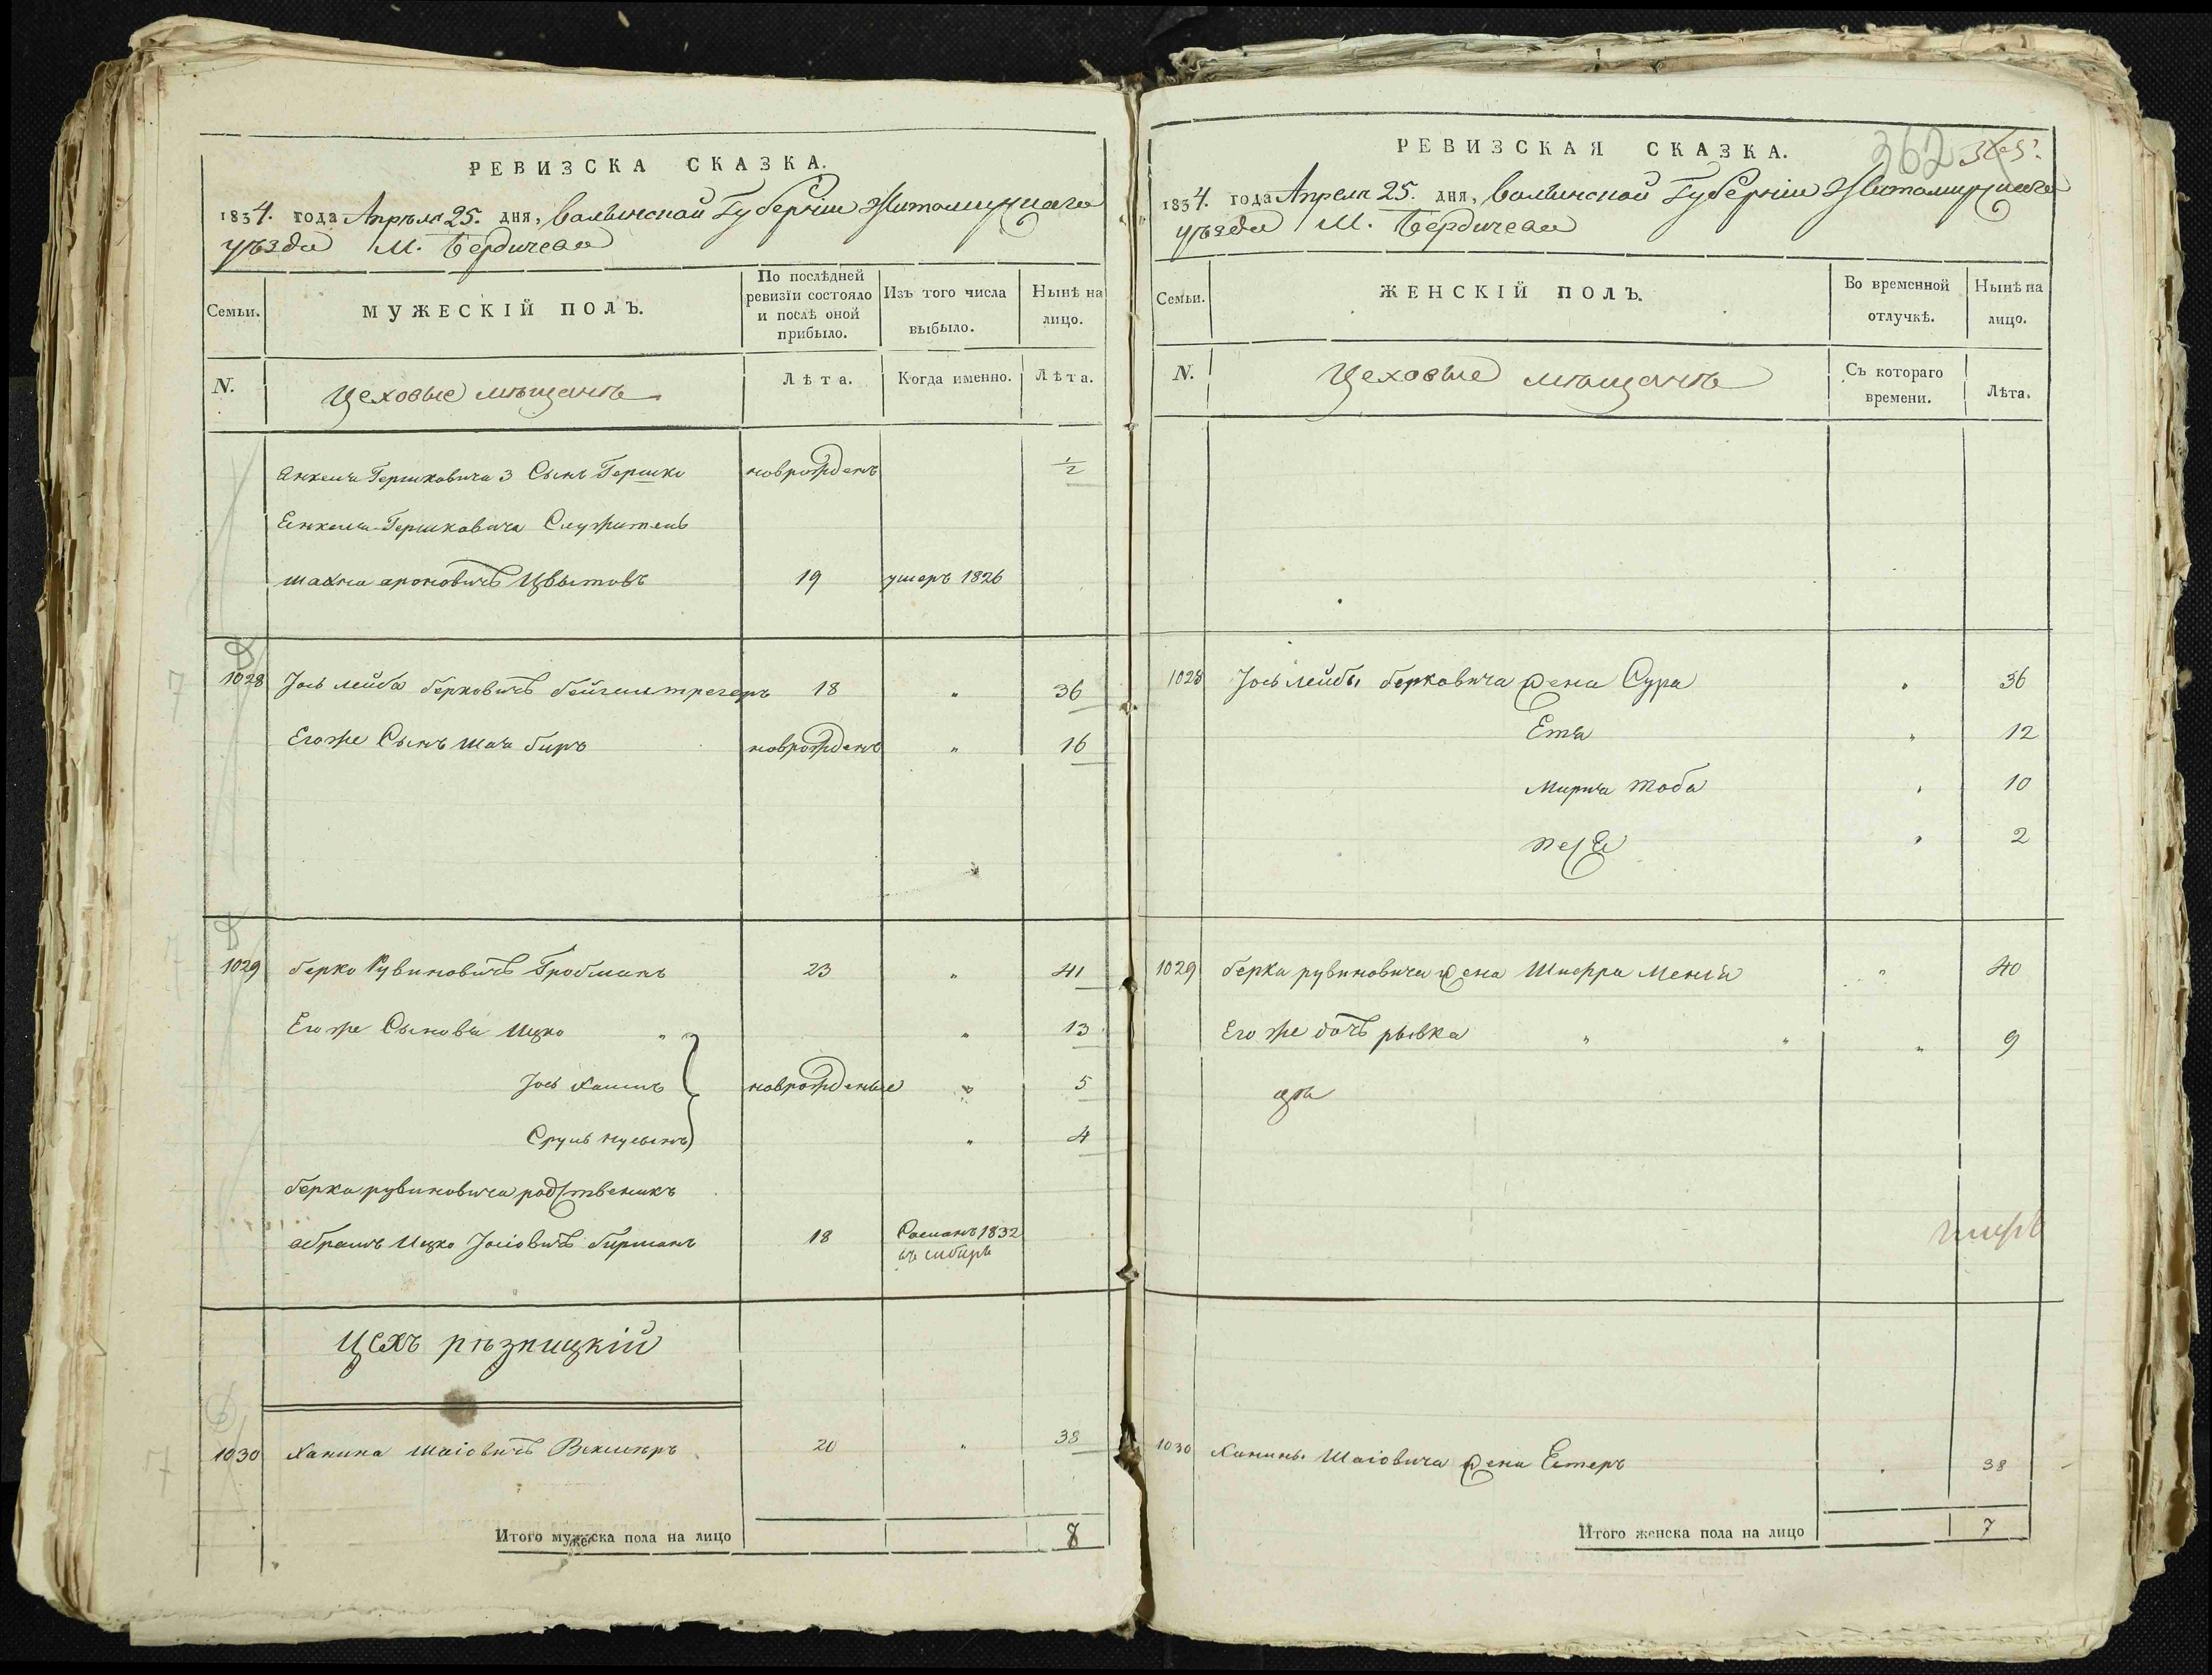 РЕВИЗСКА СКАЗКА.
1834. года Апрѣля 25. дня, Волынской Губерніи Житомирскаго
уѣзда М. Бердичева
Семьи.
МУЖЕСКІЙ ПОЛЪ.
По послѣдней
ревизіи состояло
и послѣ оной
прибыло.
Изъ того числа
выбыло.
Нынѣ на
лицо.
N.
Цеховые мѣщанѣ
Лѣта.
Когда именно.
Лѣта.
Янкеля Гершковича 3 Сынъ Гершко новрожденъ 1/2
Енкеля Гершковича Служитель
шахна ароновичъ Цвытовъ 19 умеръ 1826
1028 Іось лейба берковичъ бейгельтрегеръ 18 " 36
Егоже Сынъ Шая биръ новрожденъ " 16
1029 берко Рувиновичъ Гробманъ 23 " 41
Егоже Сыновя Ицко " " 13
Іось Хаимъ новрожденые " 5
Сруль нусынъ " 4
берка рувиновича родственикъ
абрамъ Ицко Іосіовичъ бирманъ 18 Сосланъ 1832
въ сибирь
Цехъ рѣзницкій
1030 Ханина Шаіовичъ Векслеръ 20 " 38
Итого мужеска пола на лицо 8
РЕВИЗСКАЯ СКАЗКА.
362 365.
1834. года Апреля 25. дня, Волынской Губерніи Житомирскаго
уѣзда М. Бердичева
Семьи.
ЖЕНСКІЙ ПОЛЪ.
Во временной
отлучкѣ.
Нынѣ на
лицо.
N.
Цеховые мѣщанѣ
Съ котораго
времени.
Лѣта.
1028 Іось Лейбы берковича жена Сура " 36
Етя " 12
Мирча Тоба " 10
" 2
1029 берка рувиновича жена ШифраМенія " 40
Его же дочъ рывка " " " 9
1030 Ханины Шаіовича жена Естеръ " 38
Итого женска пола на лицо 7